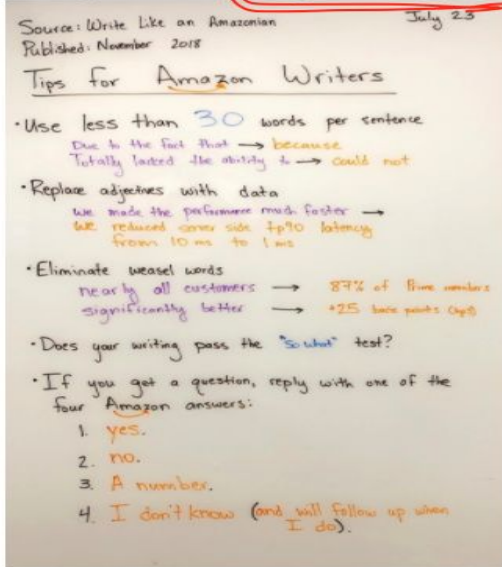 Source: Write Like an Amazonian
July 23
Published: November 2018
Tips for Amazon Writers
• Use less than 30 words per sentence
Due to the fact that → because
Totally lacked the ability to → could not
• Replace adjectives with data
We made the performance much faster →
We reduced server side tp90 latency
from 10 ms to 1 ms
• Eliminate weasel words
nearly all customers → 87% of Prime members
significantly better → +25 basis points (bps)
• Does your writing pass the "so what" test?
• If you get a question, reply with one of the
four Amazon answers:
1. yes.
2. no.
3. A number.
4. I don't know (and will follow up when
I do).